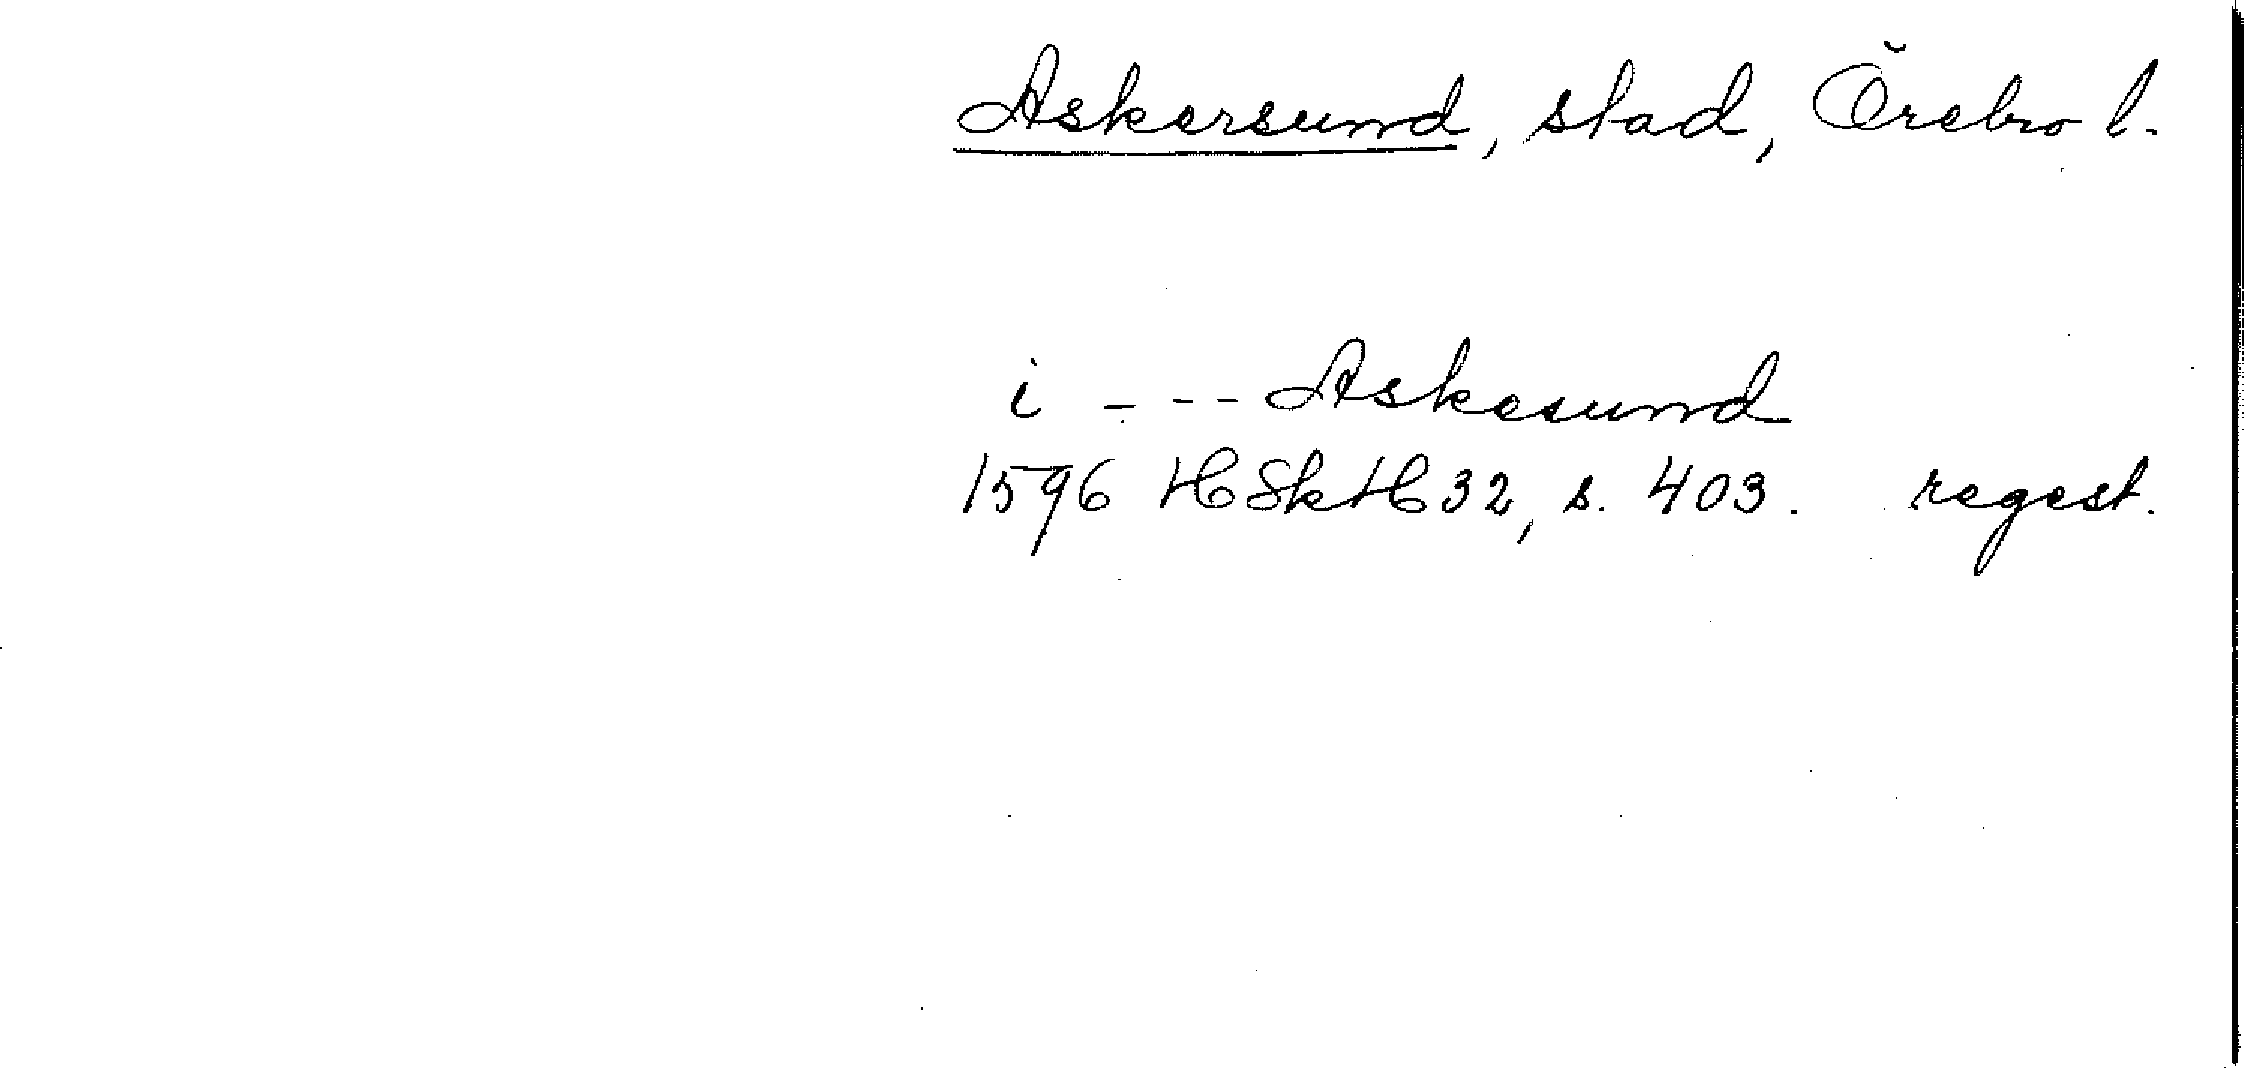 Askersund, stad, Örebro l.
i --- Askesund
1596 HSkH 32, s. 403. regest.